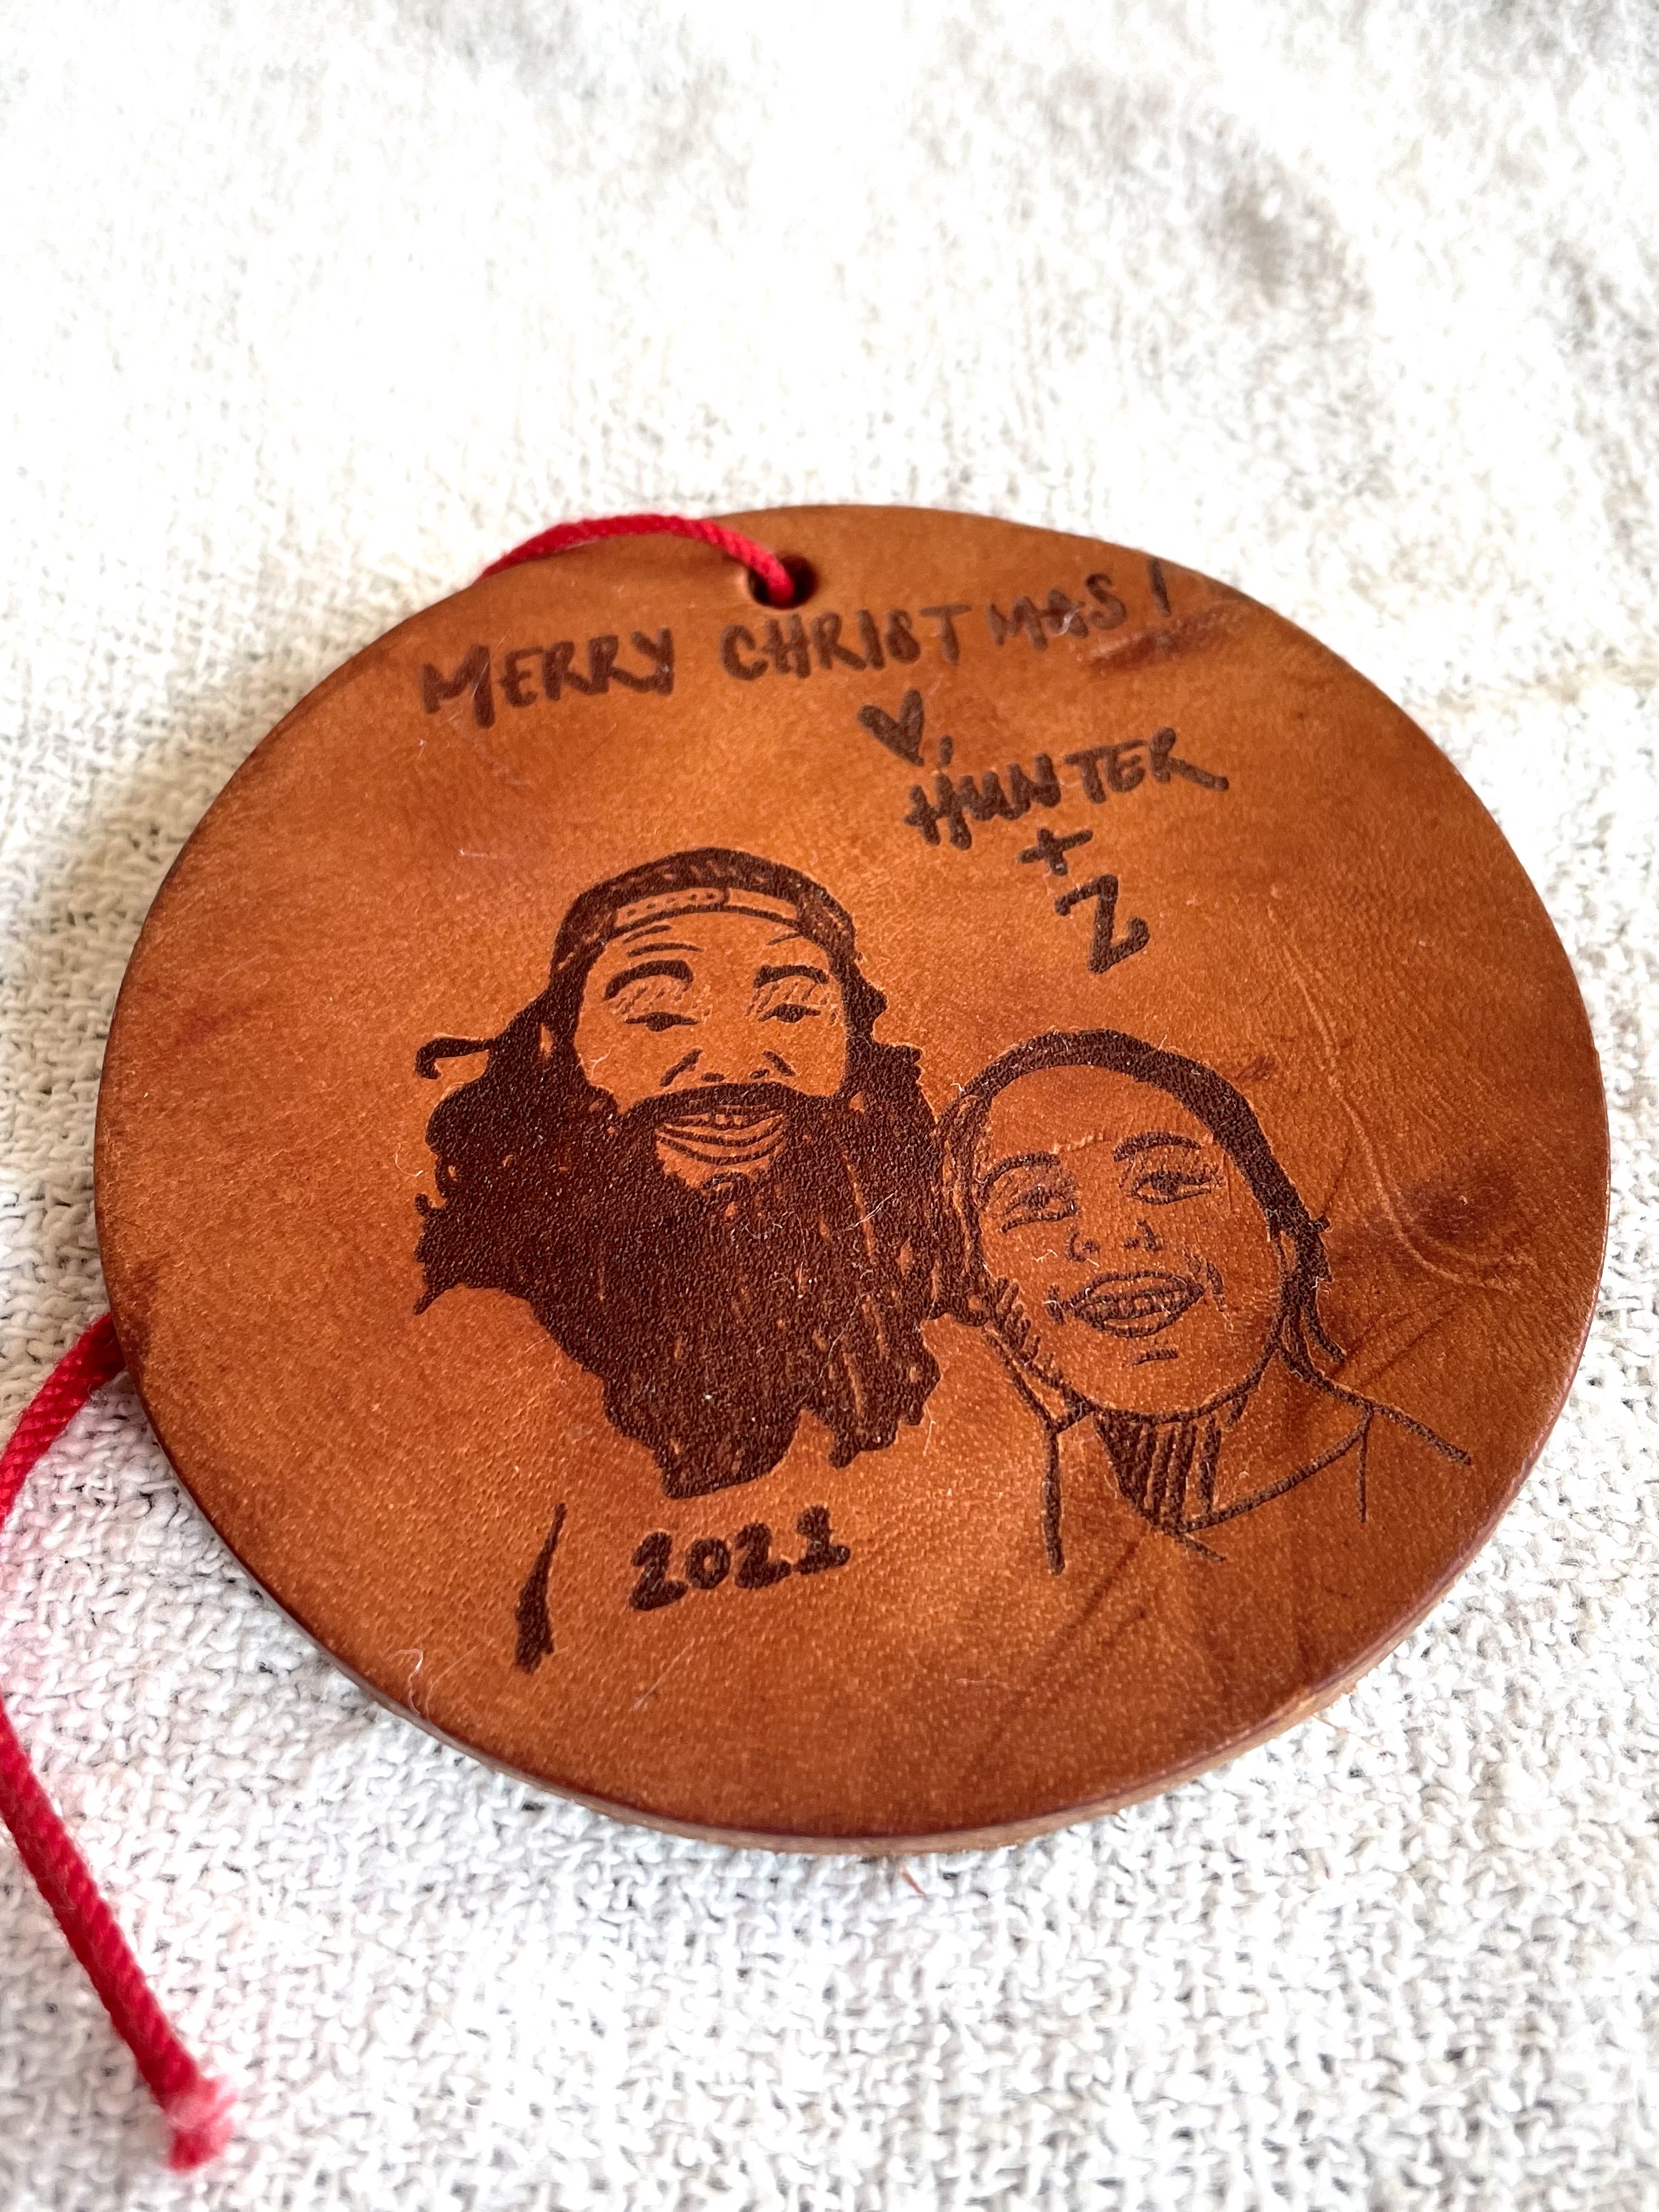 MERRY CHRISTMAS!
♥,
HUNTER
+
Z
2021